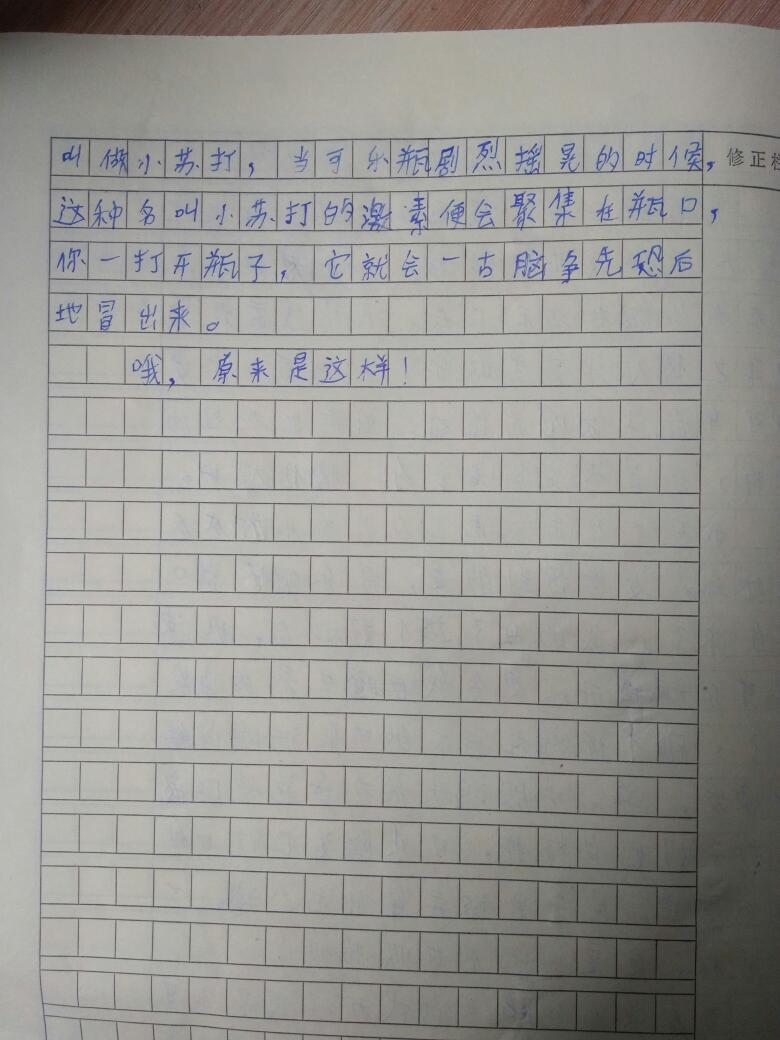 叫做小苏打，当可乐瓶剧烈摇晃的时候，
修正栏
这种名叫小苏打的激素便会聚集在瓶口，
你一打开瓶子，它就会一古脑争先恐后
地冒出来。
哦，原来是这样！